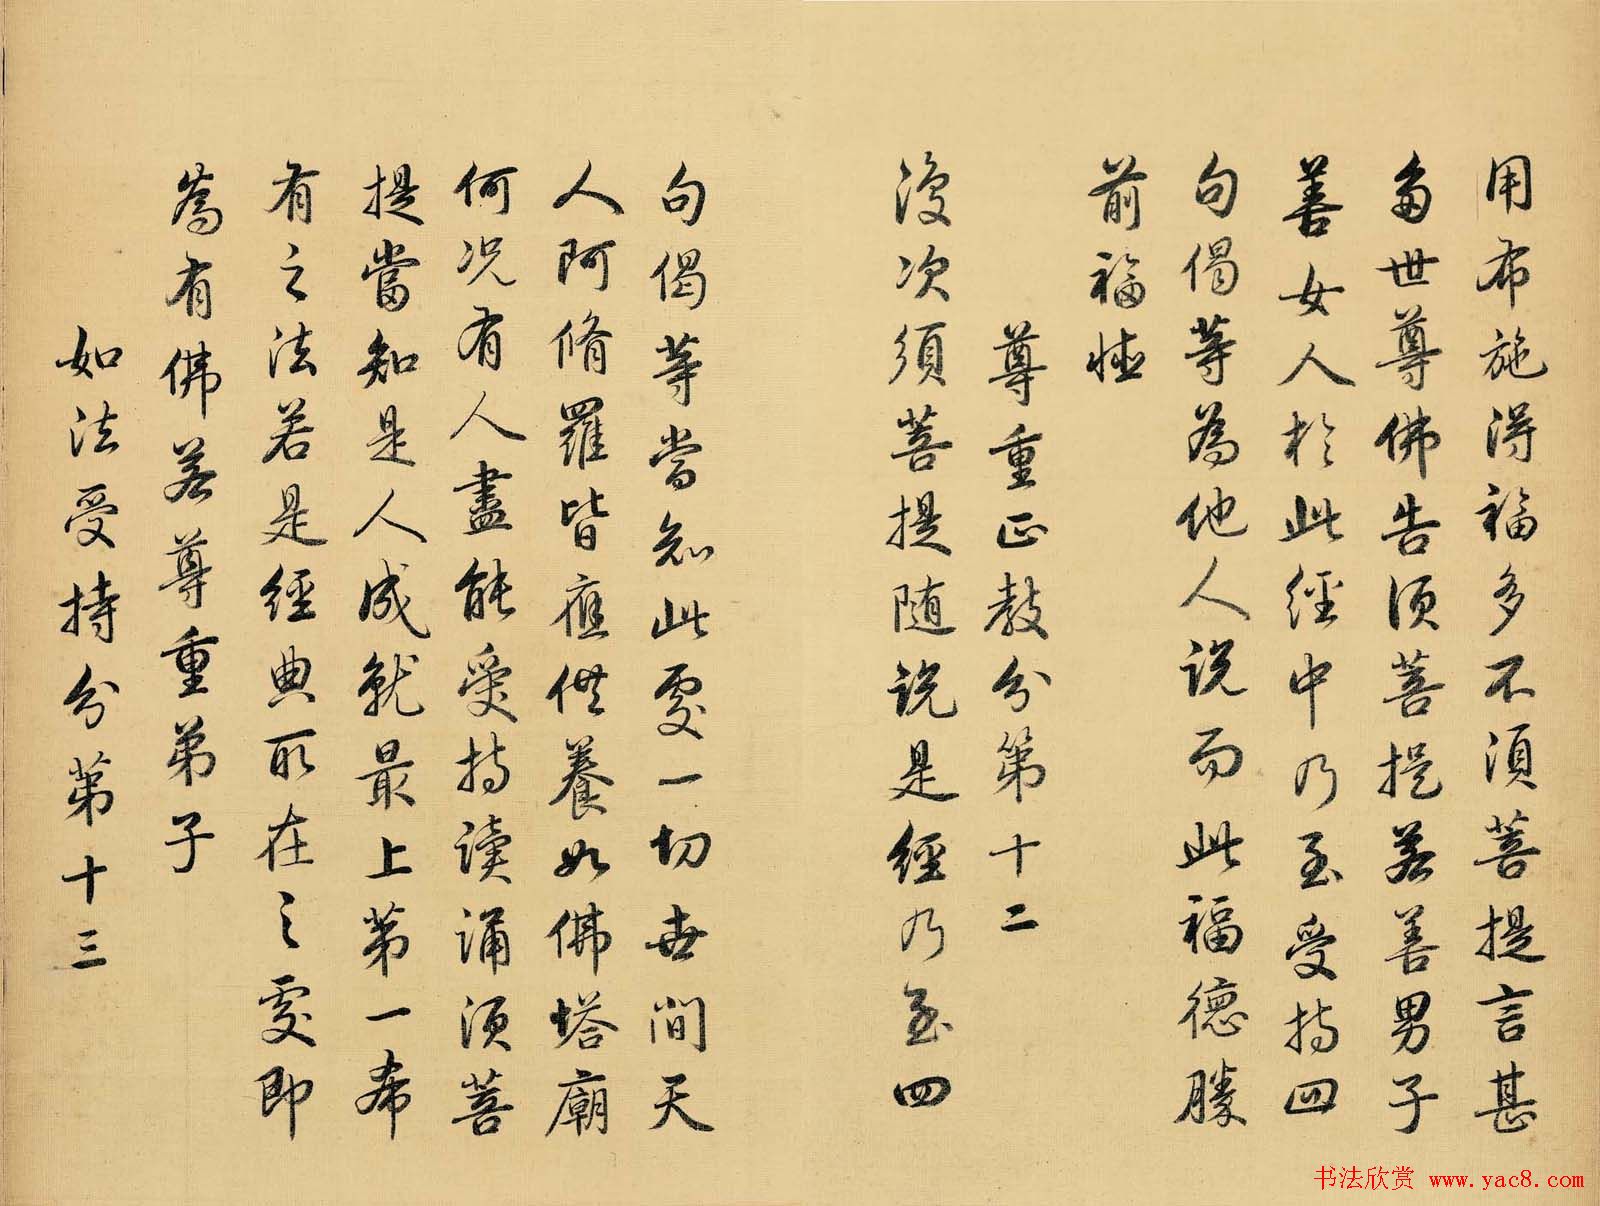 用布施得福多不須菩提言甚
多世尊佛告須菩提若善男子
善女人於此經中乃至受持四
句偈等為他人說而此福德勝
前福德
尊重正教分第十二
復次須菩提隨說是經乃至四
句偈等當知此處一切世間天
人阿脩羅皆應供養如佛塔廟
何況有人盡能受持讀誦須菩
提當知是人成就最上第一希
有之法若是經典所在之處即
為有佛若尊重弟子
如法受持分第十三
书法欣赏 www.yac8.com